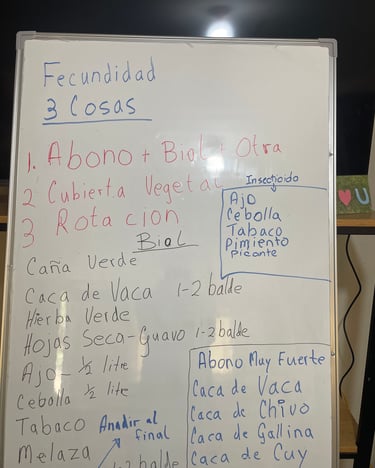 Fecundidad
3 Cosas
1. Abono + Biol + Otra
2 Cubierta Vegetal
3 Rotacion
Insecticida
Ajo
Cebolla
Tabaco
Pimiento
Picante
Biol
Caña Verde
Caca de Vaca 1-2 balde
Hierba Verde
Hojas Seca-Guavo 1-2 balde
Ajo - ½ litre
Cebolla ½ litre
Tabaco
Añadir al
final
Melaza
1-2 balde
Abono Muy Fuerte
Caca de Vaca
Caca de Chivo
Caca de Gallina
Caca de Cuy
U